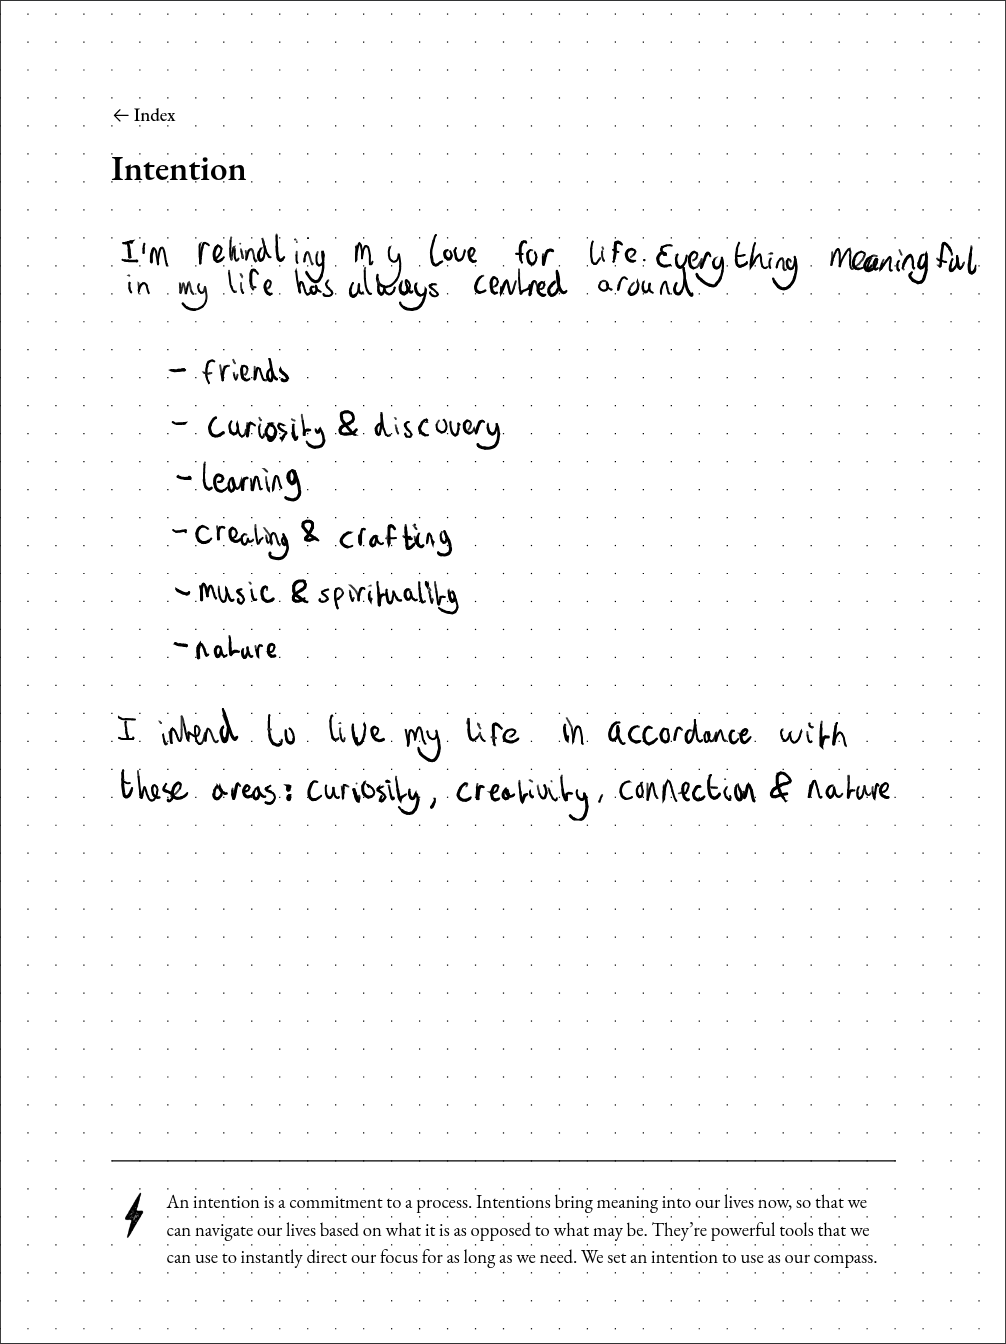 ← Index
Intention
I'm rekindling my love for life. Everything meaningful
in my life has always centred around:
- friends
- curiosity & discovery
- learning
- creating & crafting
- music & spirituality
- nature
I intend to live my life in accordance with
these areas: curiosity, creativity, connection & nature
An intention is a commitment to a process. Intentions bring meaning into our lives now, so that we
can navigate our lives based on what it is as opposed to what may be. They're powerful tools that we
can use to instantly direct our focus for as long as we need. We set an intention to use as our compass.